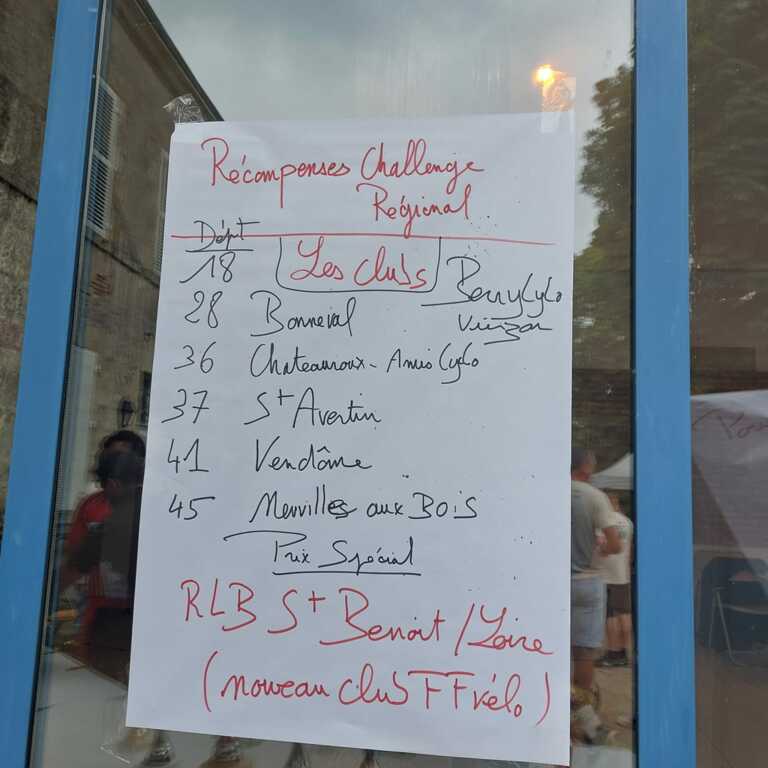 Récompenses Challenge
Régional
Dépt
18 Les clubs Berry Cyclo
Vierzon
28 Bonneval
36 Chateauroux - Amis Cyclo
37 St Avertin
41 Vendôme
45 Mervilles aux BOIS
Prix Spécial
RLB St Benoit/Loire
(nouveau club FFvélo)